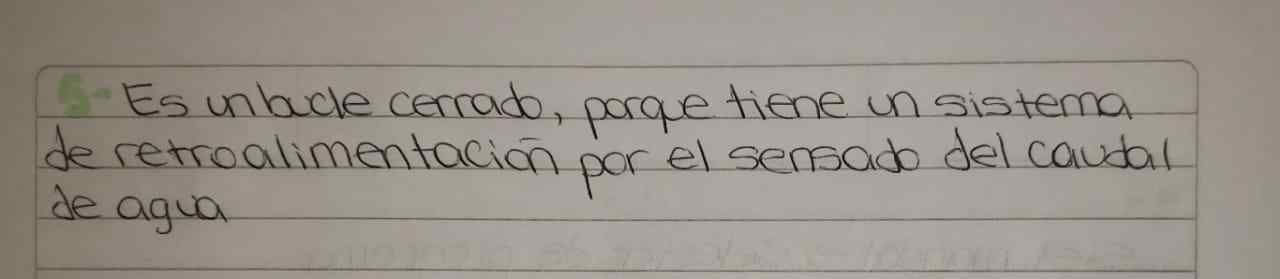 5- Es un bucle cerrado, porque tiene un sistema
de retroalimentación por el sensado del caudal
de agua